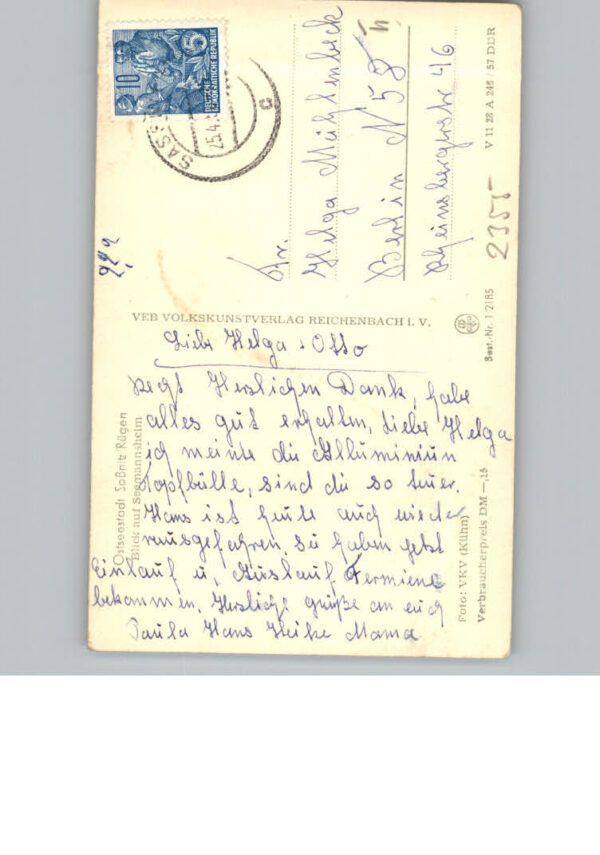 10
5
DEUTSCHE
DEMOKRATISCHE REPUBLIK
SASS
25.4.
c
Fr.
Helga Mühlmbeck
Berlin N 58
Rheinsbergerstr 46
V 11 28 A 246 / 57 DDR
2355
VEB VOLKSKUNSTVERLAG REICHENBACH i. V.
Best.-Nr. 1 2185
Liebe Helga u Otto
recht Herzlichen Dank, habe
alles gut erhalten, Liebe Helga
ich meinte die Alluminiun
sind die so teuer.
Hans ist heute auch wieder
rausgefahren, sie haben jetzt
Einlauf u. Auslauf Termine
bekommen. Herzliche grüße an euch
Paula Hans Heike Mama
Ostseestadt Saßnitz Rügen
Blick auf Seemannsheim
Foto: VKV (Kühn)
Verbraucherpreis DM —,15